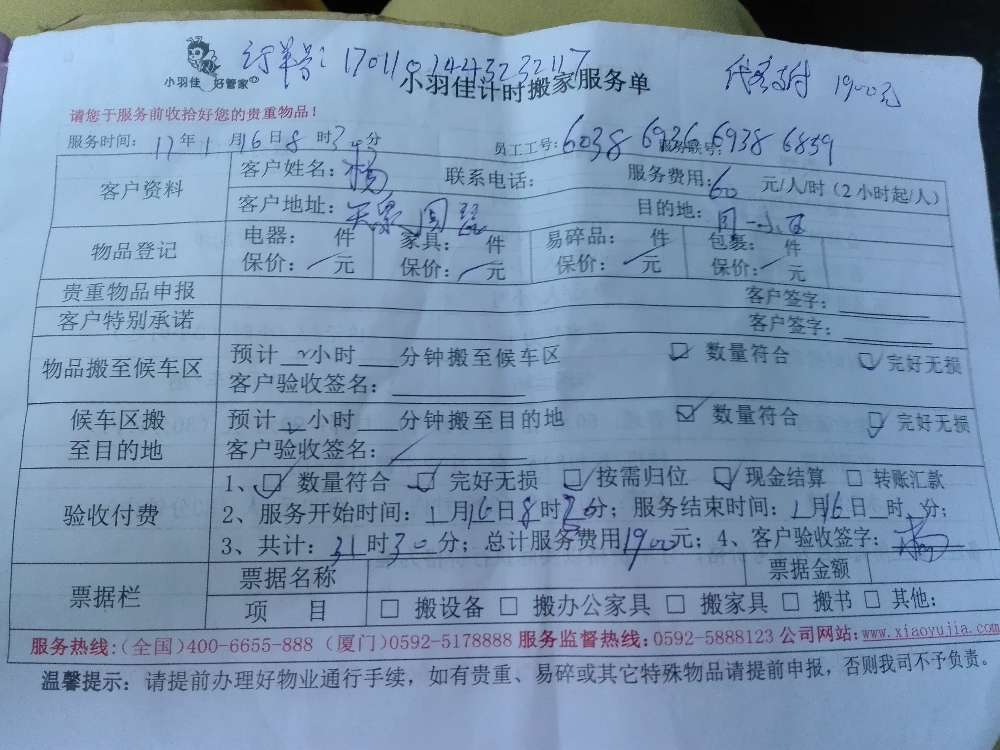 订单号：
代客支付 1900元
小羽佳 好管家
小羽佳计时搬家服务单
请您于服务前收拾好您的贵重物品！
服务时间：17年1月16日8时3 分 员工工号：6038 6936 6938 6859
客户资料
客户姓名：杨 联系电话： 服务费用：60元/人/时（2小时起/人）
客户地址： 目的地：同一小区
物品登记
电器： 件 家具： 件 易碎品： 件 包裹： 件
保价： 元 保价： 元 保价： 元 保价： 元
贵重物品申报 客户签字：
客户特别承诺 客户签字：
物品搬至候车区
预计 小时 分钟搬至候车区 ☑ 数量符合 ☑ 完好无损
客户验收签名：
候车区搬至目的地
预计 小时 分钟搬至目的地 ☑ 数量符合 ☑ 完好无损
客户验收签名：
验收付费
1、☑ 数量符合 ☑ 完好无损 ☑ 按需归位 ☑ 现金结算 □ 转账汇款
2、服务开始时间：1月16日8时 分；服务结束时间：1月16日 时 分；
3、共计：31时30分；总计服务费用1900元；4、客户验收签字：杨
票据栏
票据名称 票据金额
项 目 □ 搬设备 □ 搬办公家具 □ 搬家具 □ 搬书 □ 其他：
服务热线：（全国）400-6655-888（厦门）0592-5178888 服务监督热线：0592-5888123 公司网站：www.xiaoyujia.com
温馨提示：请提前办理好物业通行手续，如有贵重、易碎或其它特殊物品请提前申报，否则我司不予负责。